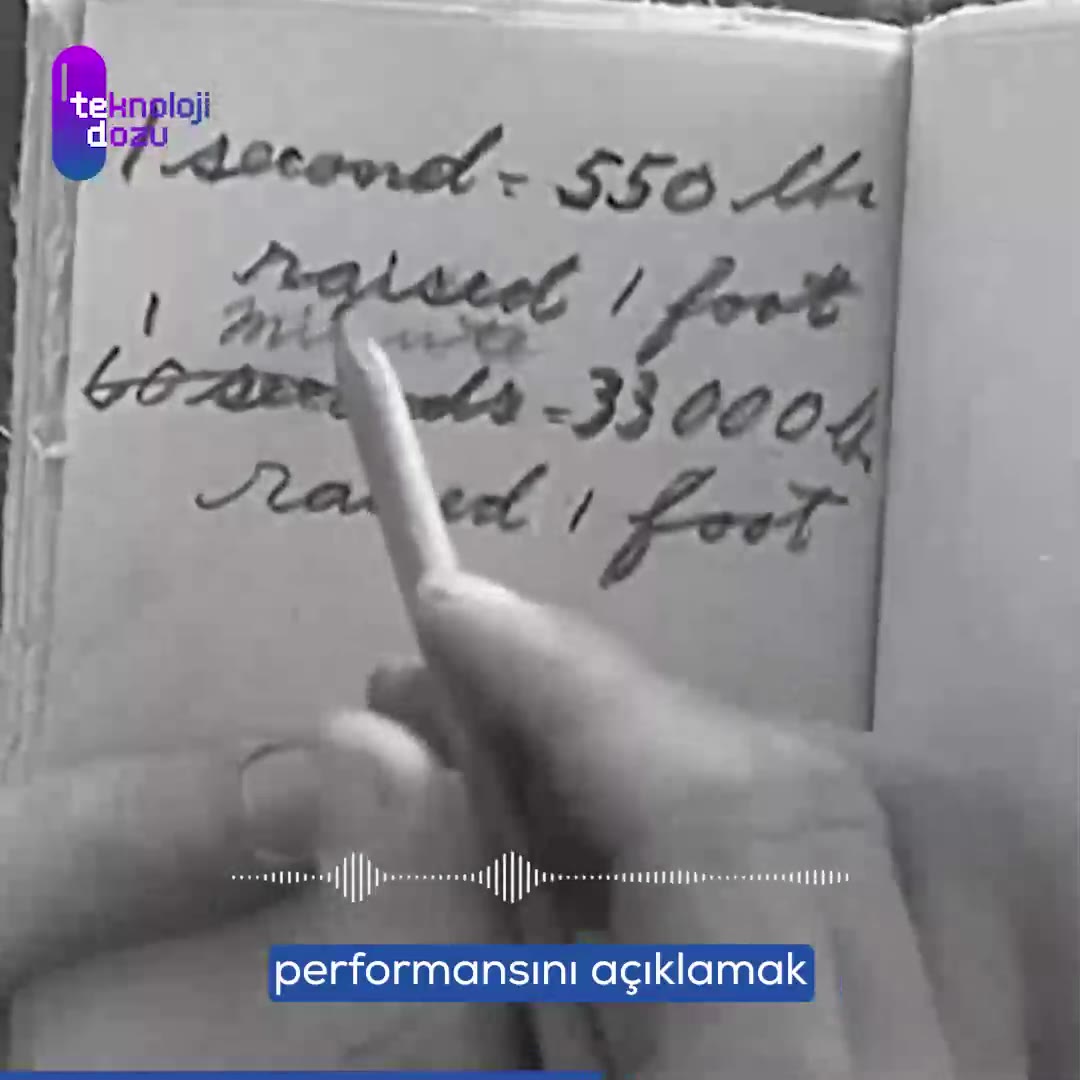 teknoloji
dozu
1 second = 550 lbs
raised 1 foot
1 minute
60 seconds = 33000 lbs
raised 1 foot
performansını açıklamak